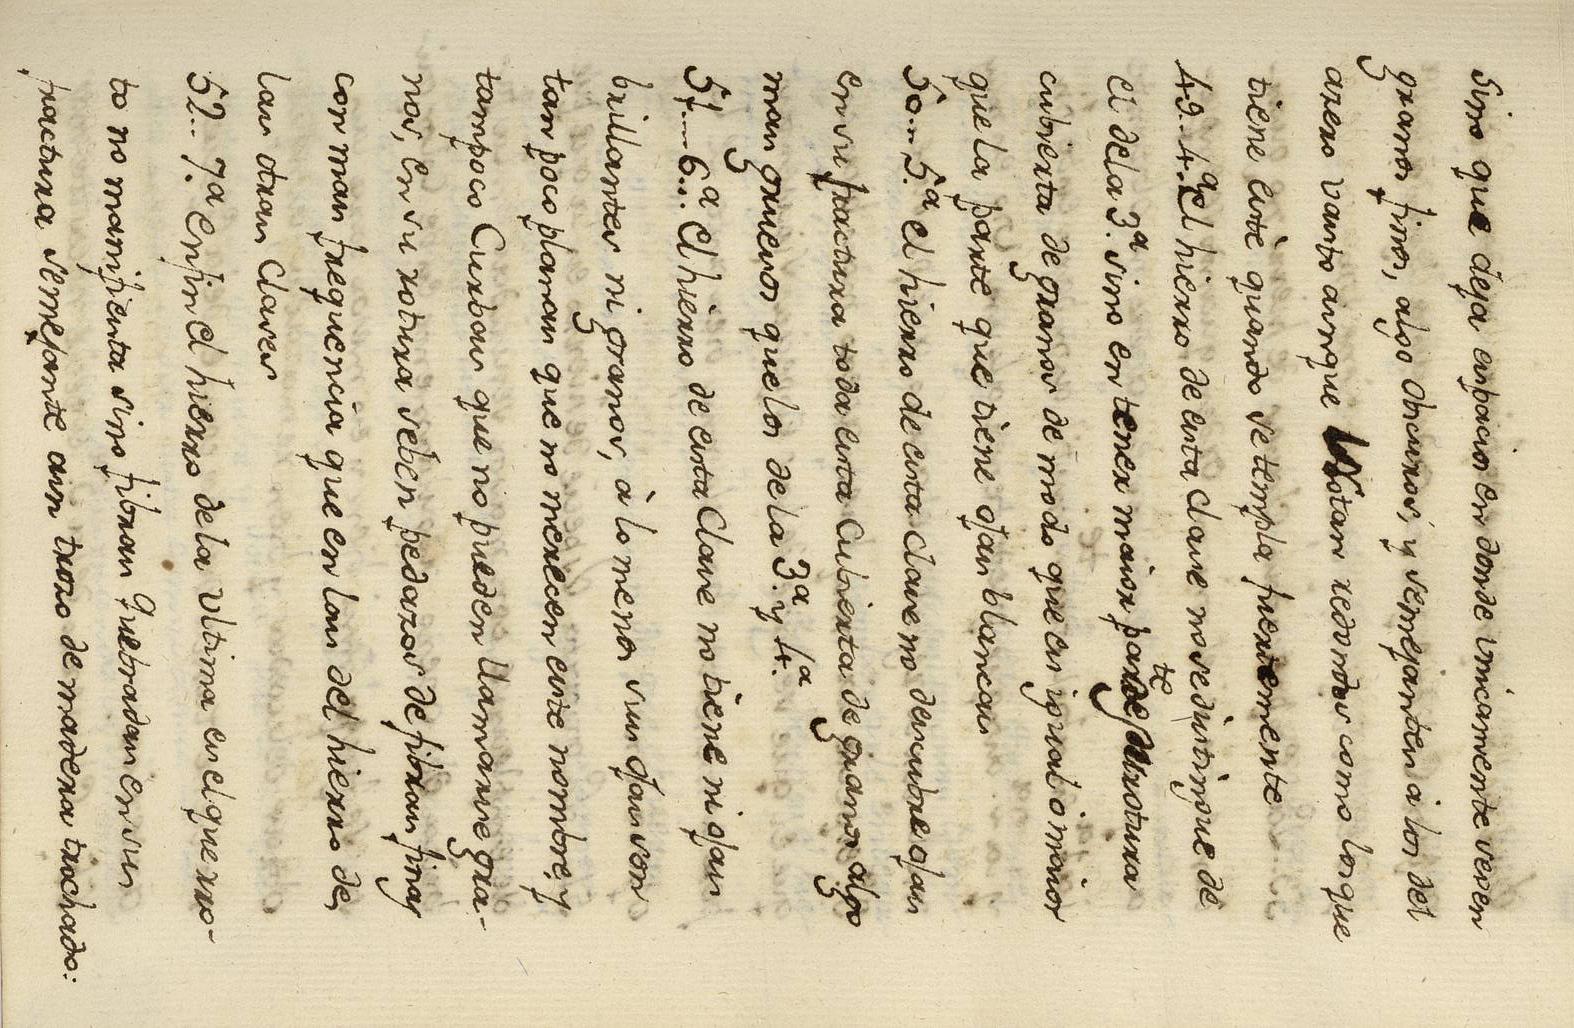 sino que deja espacios en donde unicamente se ven
granos finos, algo obscuros, y semejantes a los del
azero vasto aunque Notan redondos como los que
tiene este quando se templa fuertemente
49..4.ª el hierro de esta clase no se distingue de
el dela 3.ª sino en tener maior parte de su rotura
cubierta de granos de modo que es igual o maior
que la parte que tiene ojas blancas
50... 5.ª el hierro de esta clase no descubre ojas
en su fractura toda esta cubierta de granos algo
mas gruesos que los de la 3.ª y 4.ª
51.... 6..ª el hierro de esta Clase no tiene ni ojas
brillantes ni granos, à lo menos sus ojas son
tan poco planas que no merecen este nombre, y
tampoco Cuerdas que no pueden llamarse gra-
nos, en su rotura se ben pedazos de fibras finas
con mas frequencia que en las del hierro de
las otras Clases
52... 7.ª en fin el hierro de la ultima es el que ro-
to no manifiesta sino fibras quebradas en su
fractura semejante aun trozo de madera trochado: